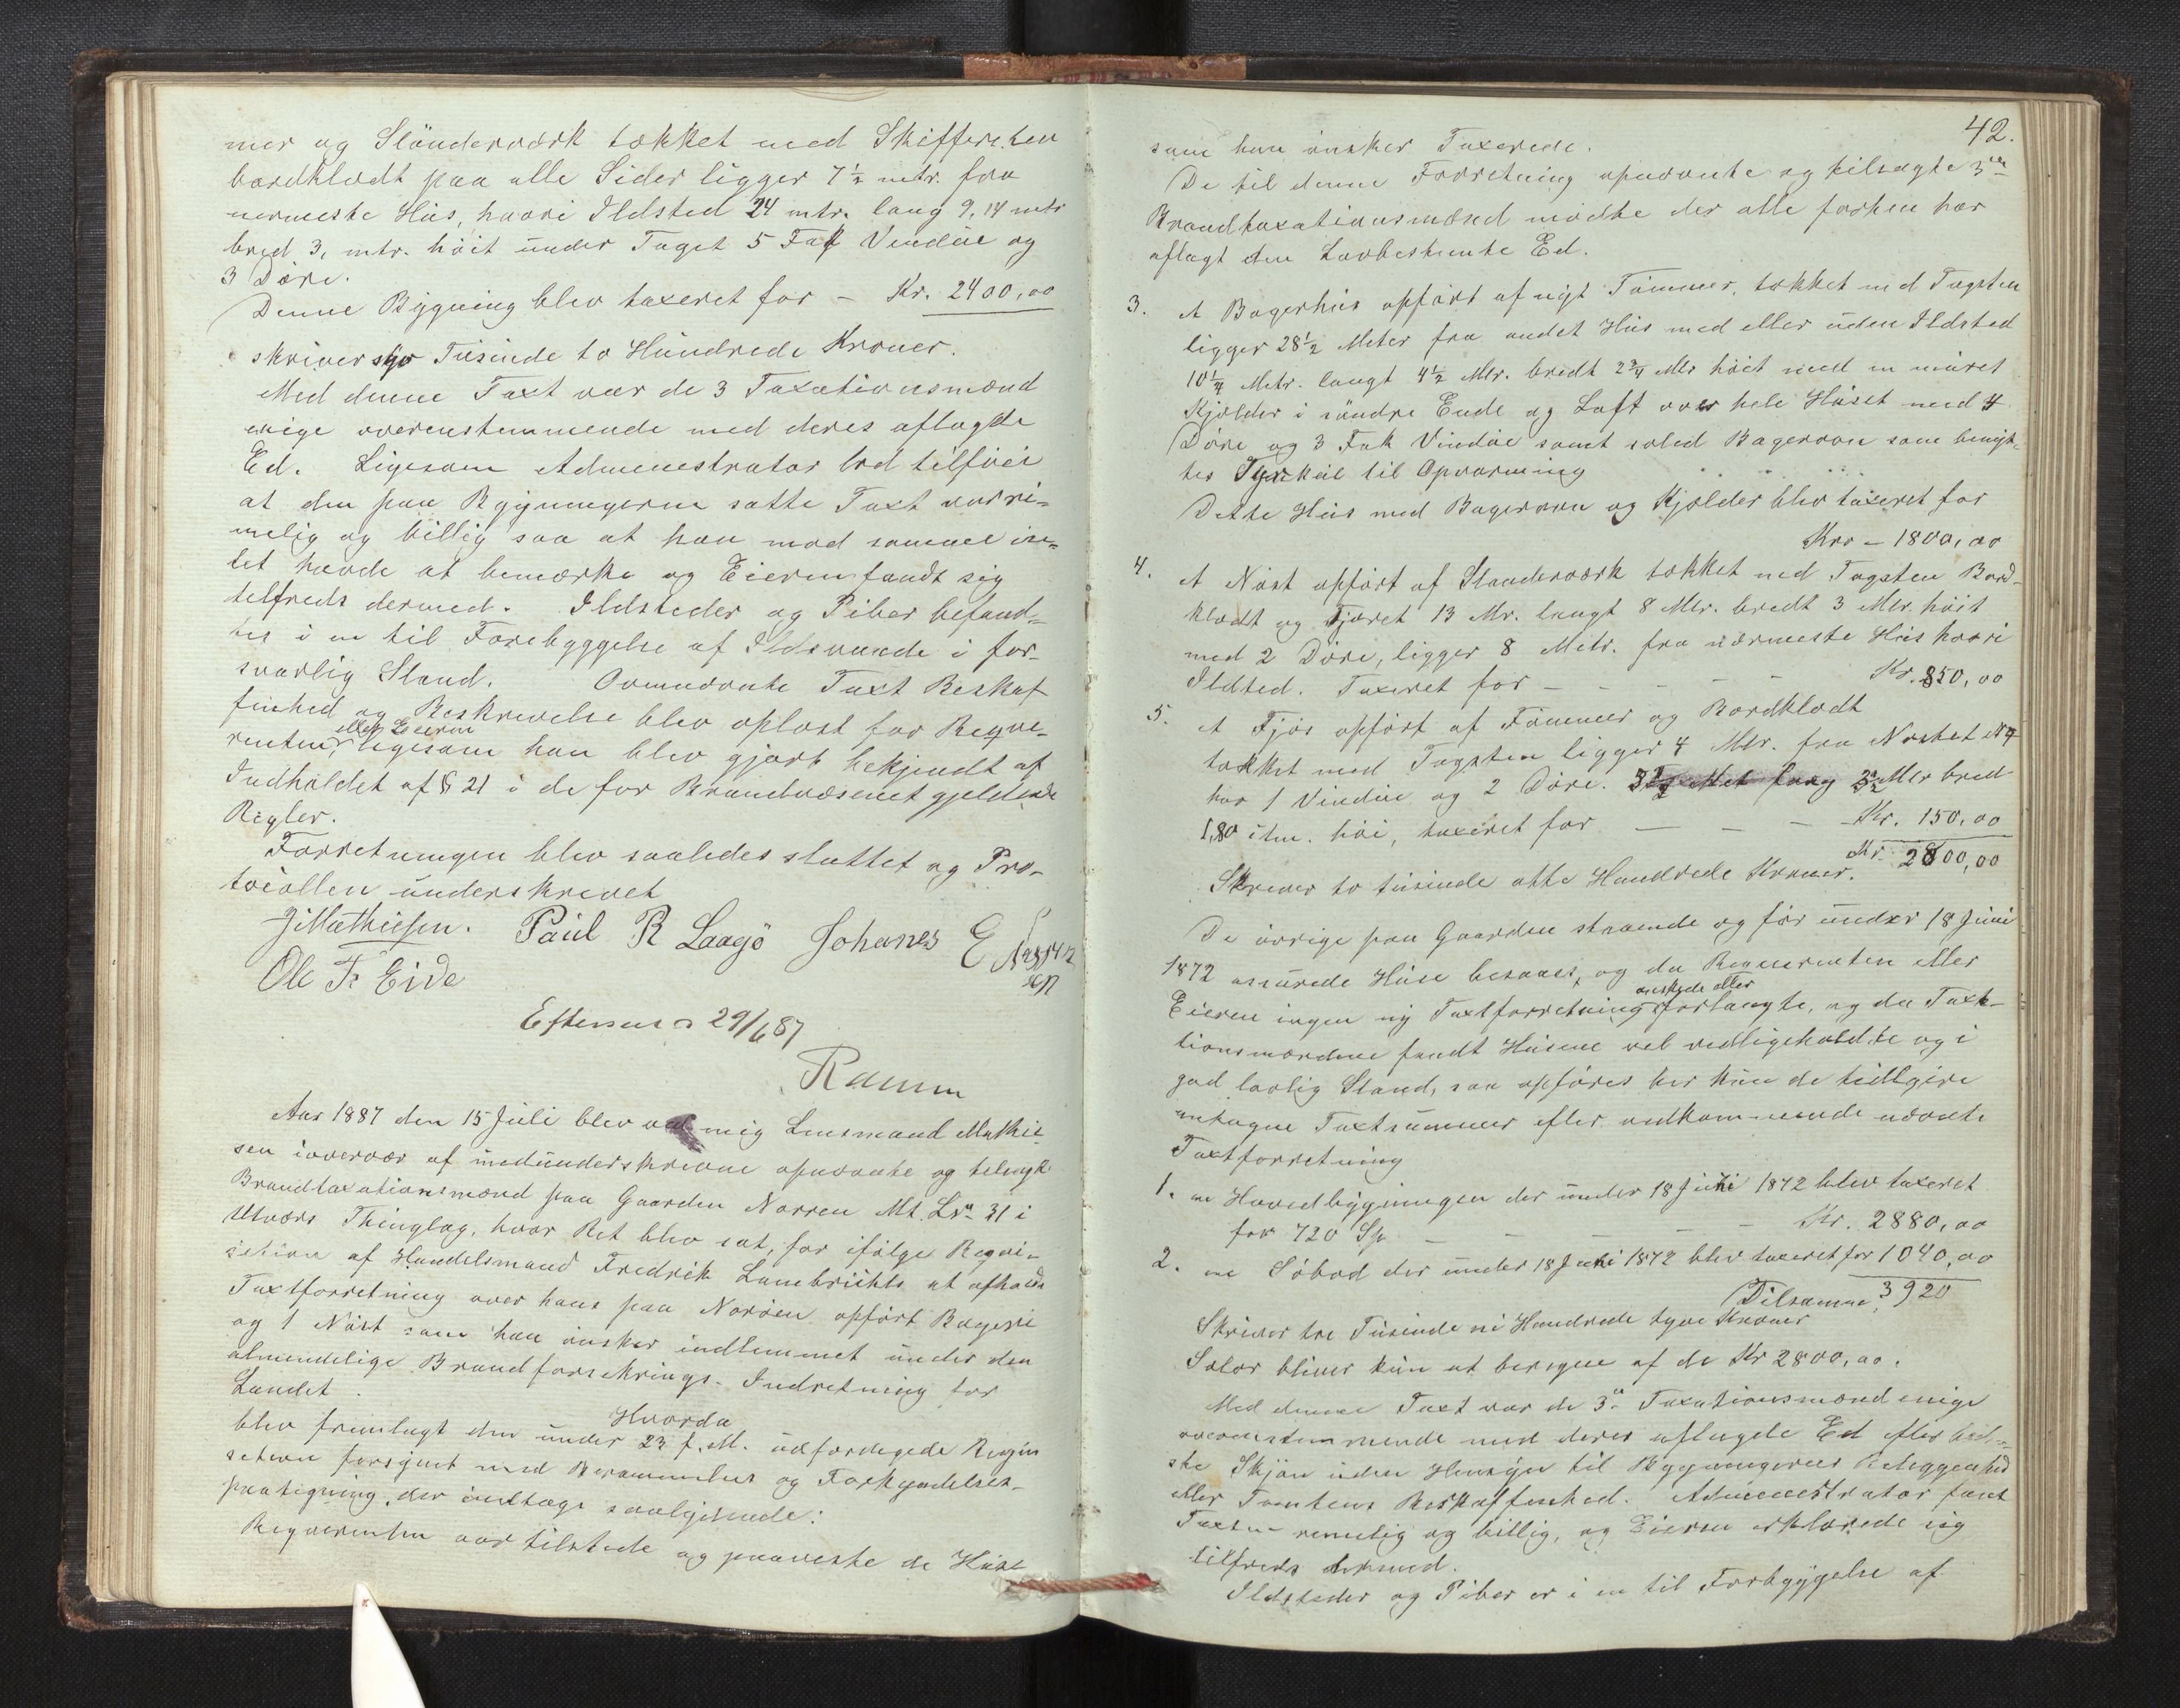 mer og Slöndervœrk tœkket med Skiffersten
bordklœdt paa alle Sider ligger 7 1/2 mtr. fra
nermeste Hús, hvori Ildsted 24 mtr. lang 9,14 mtr
bred 3, mtr. höit únder Taget 5 Fak Vindúe og
3 Döre.
Denne Bÿgning blev taxeret for - Kr. 2400,00
skriver Túsinde to Húndrede Kroner.
Med denne Taxt var de 3 Taxationsmœnd
enige overenstemmende med deres aflagte
Ed. Ligesom Admenestrator lod tilföie
at den paa Bÿgningerne satte Taxt var ri-
melig og billig saa at han mod samme in-
tet havde at bemœrke og Eieren fandt sig
tilfreds dermed. Ildsteder og Piber befand-
tes i en til Forebyggelse af Ildsvaade i for-
svarlig Stand. Ovennœvnte Taxt Beskaf
finhed og Beskrivelse blev oplœst for Reqve-
eller Eieren
renten, ligesom han blev gjort bekjendt af
Indholdet af § 21 i de for Brandvœsenet gjeldende
Regler.
Forretningen blev saaledes sluttet og Pro-
tocollen únderskrevet
J. Mathiesen. Paúl R Laagö Johanes E
Ole Fr Eide
29/6 87
Ramm
Aar 1887 den 15 Júli blev ved mig Lensmand Mathie-
sen i overvœr af medúnderskrevne opnœvnte og tilsagte
Brandtaxationsmœnd paa Gaarden Norren Mt. Lr. 31 i
Utvœrs Thinglag, hvor Ret blev sat, for ifölge Reqvi-
sition af Handelsmand Fredrik Lambrúchts at afholde
Taxtforretning over hans paa Norören opfört Bageri
og 1 Nöst som han önsker indlemmet únder den
almindelige Brandforsikrings-Indretning for
Landet.
Hvorda
blev fremlagt den únder 23 f. M. údfœrdigede Reqvi
sition forsÿnet med Berammelses og Forkÿndelses-
paategning, der indtages saalÿdende:
Reqverenten var tilstede og paaviste de Húse
42.
som han önsker Taxerede.
De til denne Forretning opnœvnte og tilsagte 3de
Brandtaxationsmœnd mödte der alle forhen har
aflagt den Lovbestemte Ed.
3. et Bagerhús opfört af nÿt Tömmer, tœkket med Tagsten
ligger 28 1/2 Meter fra andet Hús med eller úden Ildsted
10 1/4 Metr. langt 4 1/2 Mtr. bredt 2 3/4 Mtr höit med en múret
Kjœlder i söndre Ende og Loft over hele Húset med 4
Döre og 3 Fak Vindúe samt solid Bagerovn som benÿt-
tes til Opvarming
Dette Hús med Bagerovn og Kjœlder blev taxeret for
Kro - 1800,00
4. et Nöst opfört af Standervœrk tœkket med Tagsten Bord-
klœdt og Tjœret 13 Mr. langt 8 Mtr. bredt 3 Mtr. höit
med 2 Döre, ligger 8 Metr. fra nœrmeste Hús hvori
Ildsted. Taxeret for - - - - Kr. 850,00
5. et Fjös opfört af Tömmer og Bordklœdt
tœkket med Tagsten ligger 4 Mtr. fra Nöstet No 4
har 1 Vindúe og 2 Döre. Met lang 3 1/2 Mtr bred
1,80 höi, taxeret for - - - Kr. 150,00
Kr. 2800,00
Skriver to túsinde otte Hundrede Kroner.
De övrige paa Gaarden staaende og för únder 18 Júni
1872 assúrede Húse besaaes, og da Reqverenten eller
önskede eller
Eieren ingen nÿ Taxtforretning forlangte, og da Taxt-
tionsmœndene fandt Húsene vel vedligeholdte og i
god lovlig Stand, saa opföres her kún de tidligere
antagne Taxtsúmmer efter vedkommende nœvnte
Taxtforretning
1. en Hovedbÿgningen der únder 18 Júni 1872 blev taxeret
for 720 Sp - - - - Kr. 2880,00
2. en Söbod der únder 18 Júni 1872 blev taxeret for 1040,00
Tilsamen 3920
Skriver tre Túsinde ni Hundrede tyve Kroner
Salœr bliver kún at beregne af de Kr 2800,00.
Med denne Taxt var de 3de Taxationsmœnd enige
overenstemmende med deres aflagte Ed efter bed-
ste Skjön úden Hensÿn til Bÿgningernes Beliggenhed
eller Tomtens Beskaffenhed. Admenestrator fandt
Taxten remelig og billig, og Eieren erklœrede sig
tilfreds dermed.
Ildsteder og Piber er i en til Forbÿgelse af